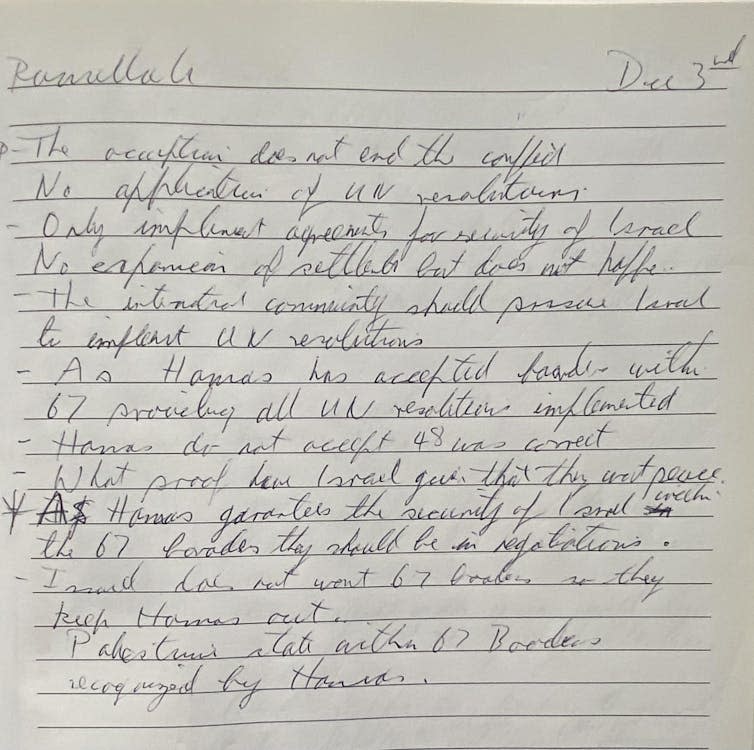 Ramallah Dec 3rd
- The acception does not end the conflict
No application of UN resolutions.
- Only implement agreements for security of Israel
No expansion of settlements but does not happen.
- The international community should pressure Israel
to implement UN resolutions
- As Hamas has accepted boarders within
67 providing all UN resolutions implemented
- Hamas do not accept 48 was correct
- What proof have Israel given that they want peace.
As Hamas garantees the security of Israel within
the 67 boarders they should be in negotiations.
- Israel does not want 67 boarders so they
keep Hamas out.
Palestinian state within 67 Boarders
recognized by Hamas.